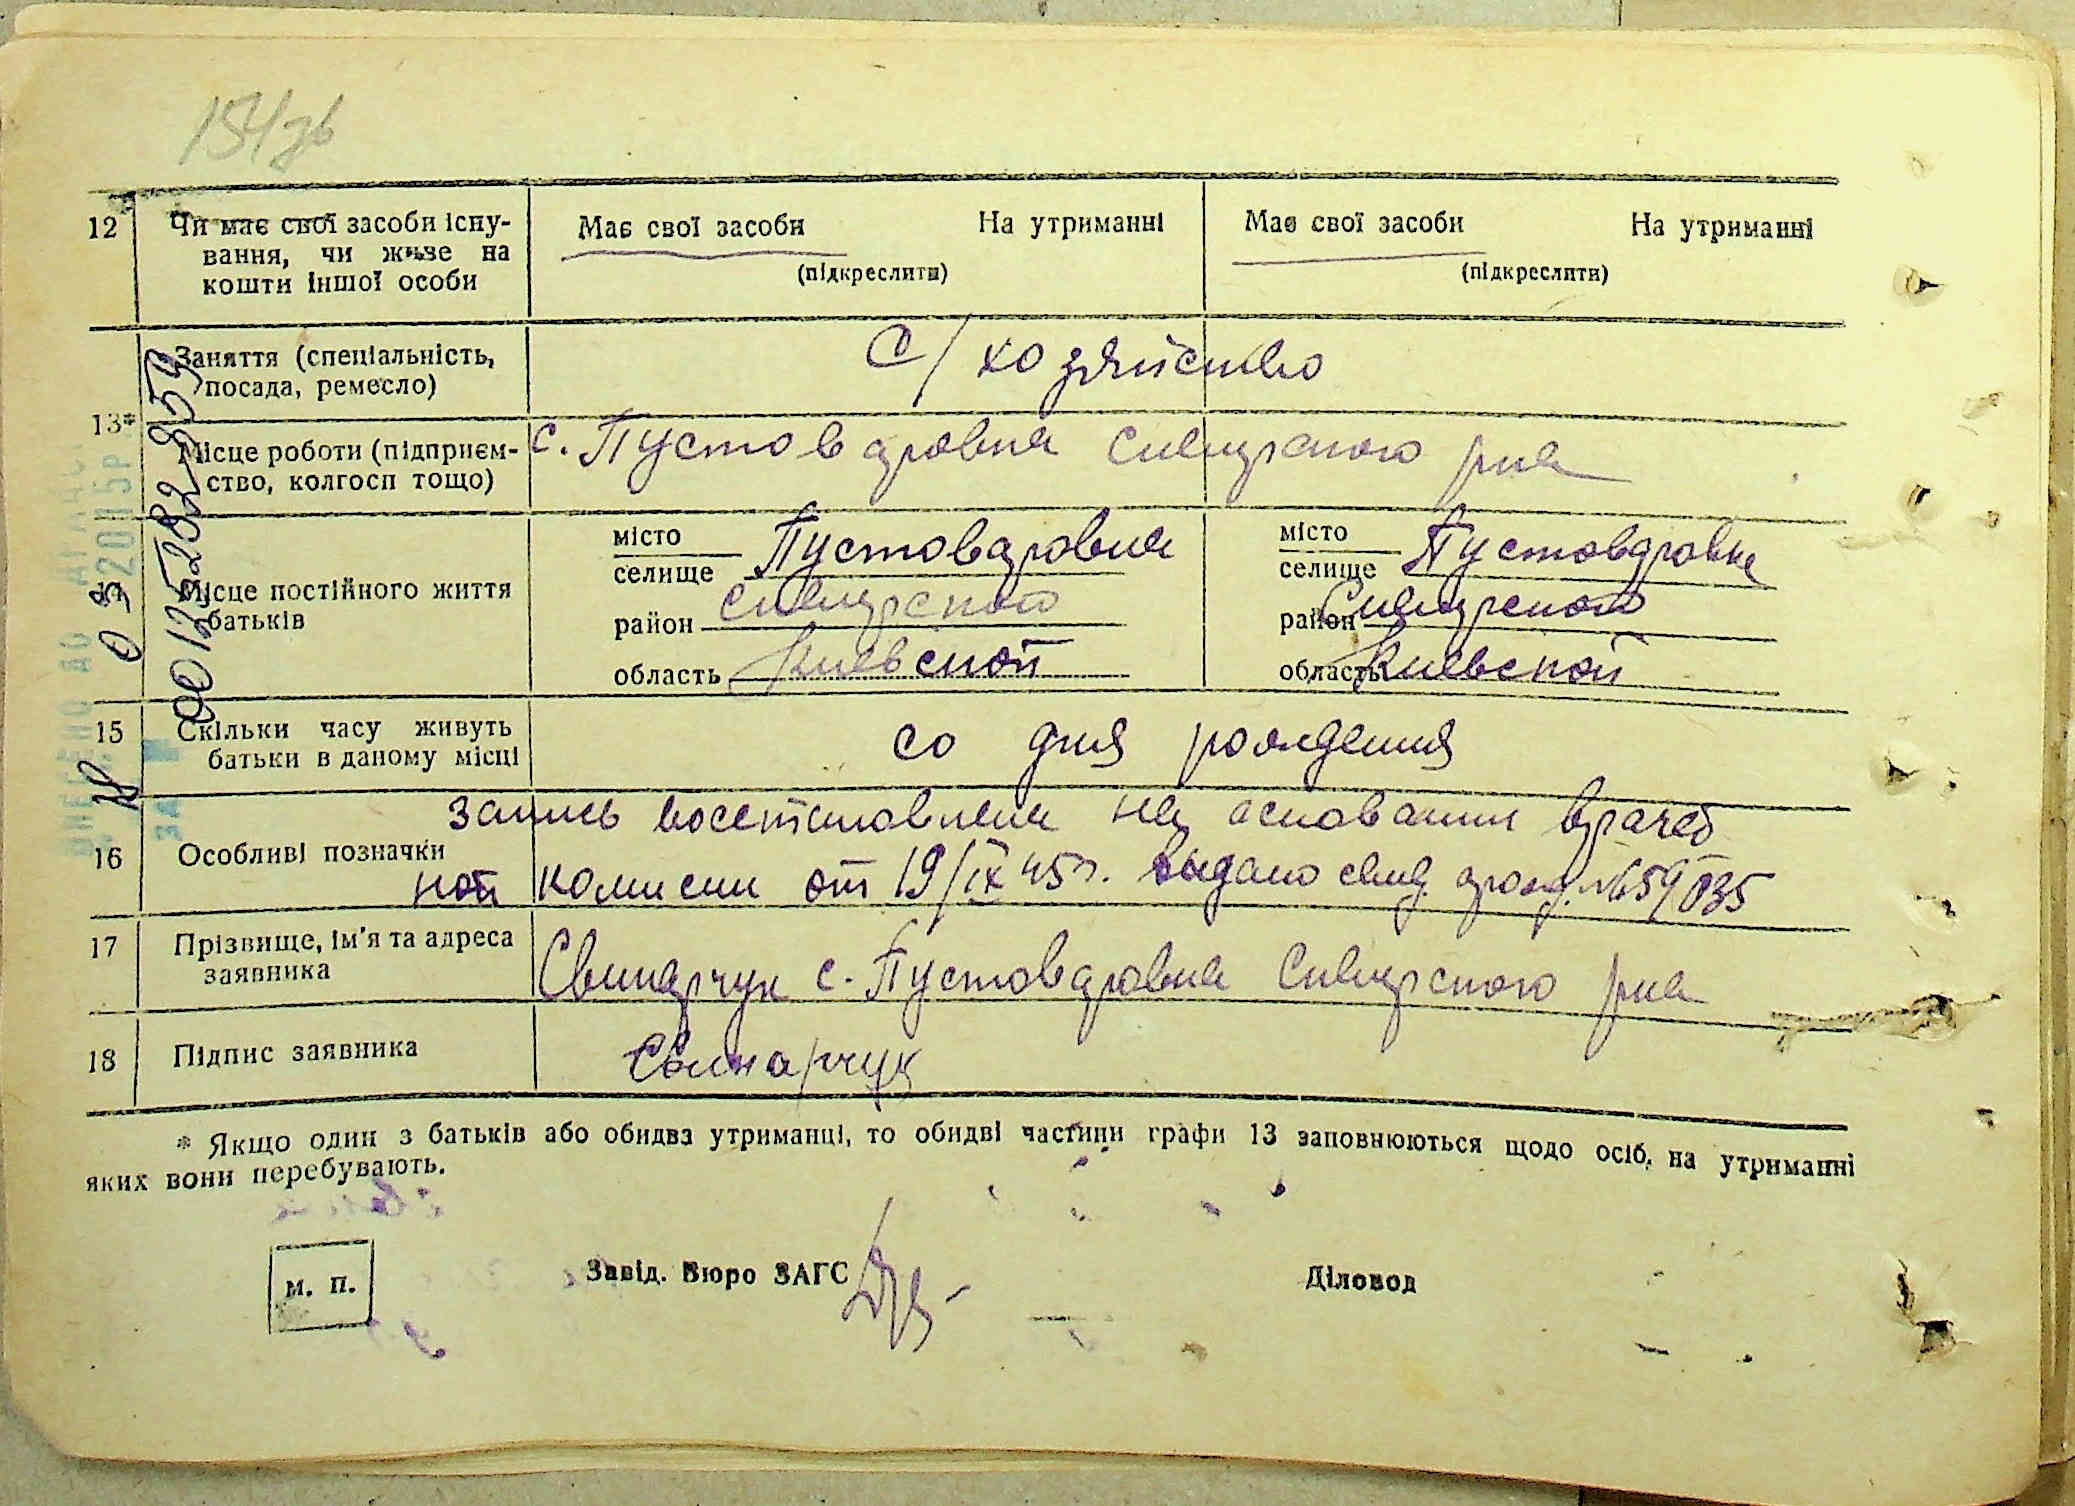 154 зв
12 Чи має свої засоби існу-
вання, чи живе на
кошти іншої особи
Має свої засоби На утриманні
(підкреслити)
Має свої засоби На утриманні
(підкреслити)
13*
Заняття (спеціальність,
посада, ремесло)
с/хозяйство
Місце роботи (підприєм-
ство, колгосп тощо)
с. Пустоваровка Сквирского р-на
Місце постійного життя
батьків
місто
селище Пустоваровка
район Сквирского
область Киевской
місто
селище Пустоваровка
район Сквирского
область Киевской
15 Скільки часу живуть
батьки в даному місці
со дня рождения
16 Особливі позначки
запись восстановлена на основании врачеб
ной комисии от 19/IX 45 г. выдано свид. о рожд. № 659035
17 Прізвище, ім'я та адреса
заявника
Свинарчук с. Пустоваровка Сквирского р-на
18 Підпис заявника
Свинарчук
* Якщо один з батьків або обидва утриманці, то обидві частини графи 13 заповнюються щодо осіб, на утриманні
яких вони перебувають.
м. п.
Завід. Бюро ЗАГС
Діловод